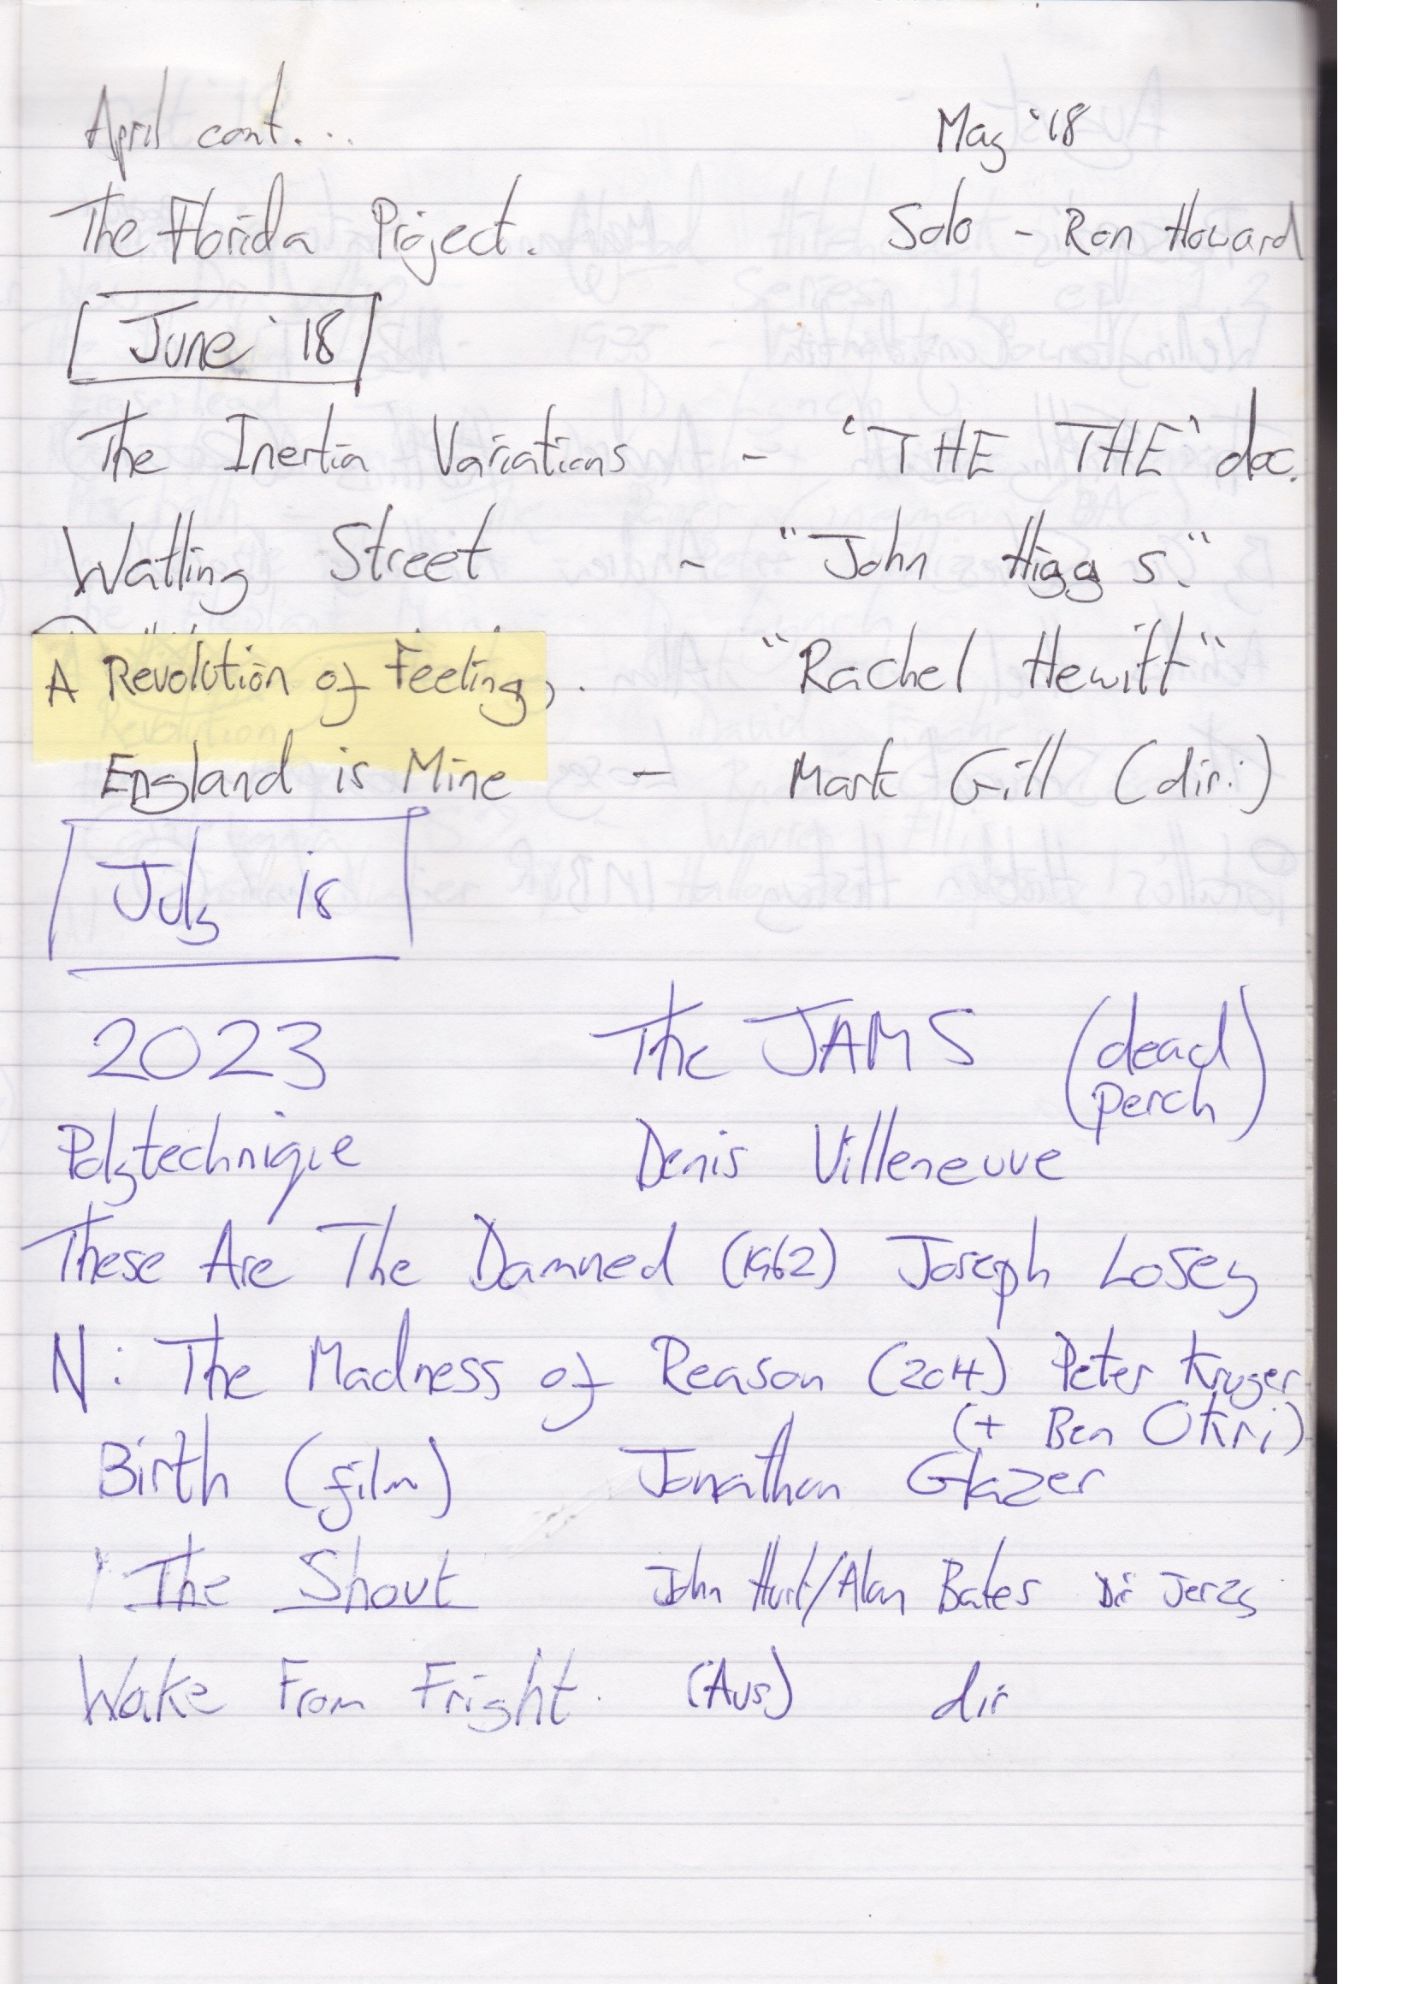 April cont...
May '18
The Florida Project.
Solo - Ron Howard
June '18
The Inertia Variations - 'THE THE' doc.
Watling Street - "John Higgs."
A Revolution of Feeling, . "Rachel Hewitt"
England is Mine - Mark Gill (dir.)
July 18
2023 The JAMS (dead perch)
Polytechnique Denis Villeneuve
These Are The Damned (1962) Joseph Losey
N: The Madness of Reason (2014) Peter Kruger
(+ Ben Okri)
Birth (film) Jonathan Glazer
The Shout John Hurt/Alan Bates Dir Jerzy
Wake From Fright. (Aus) dir